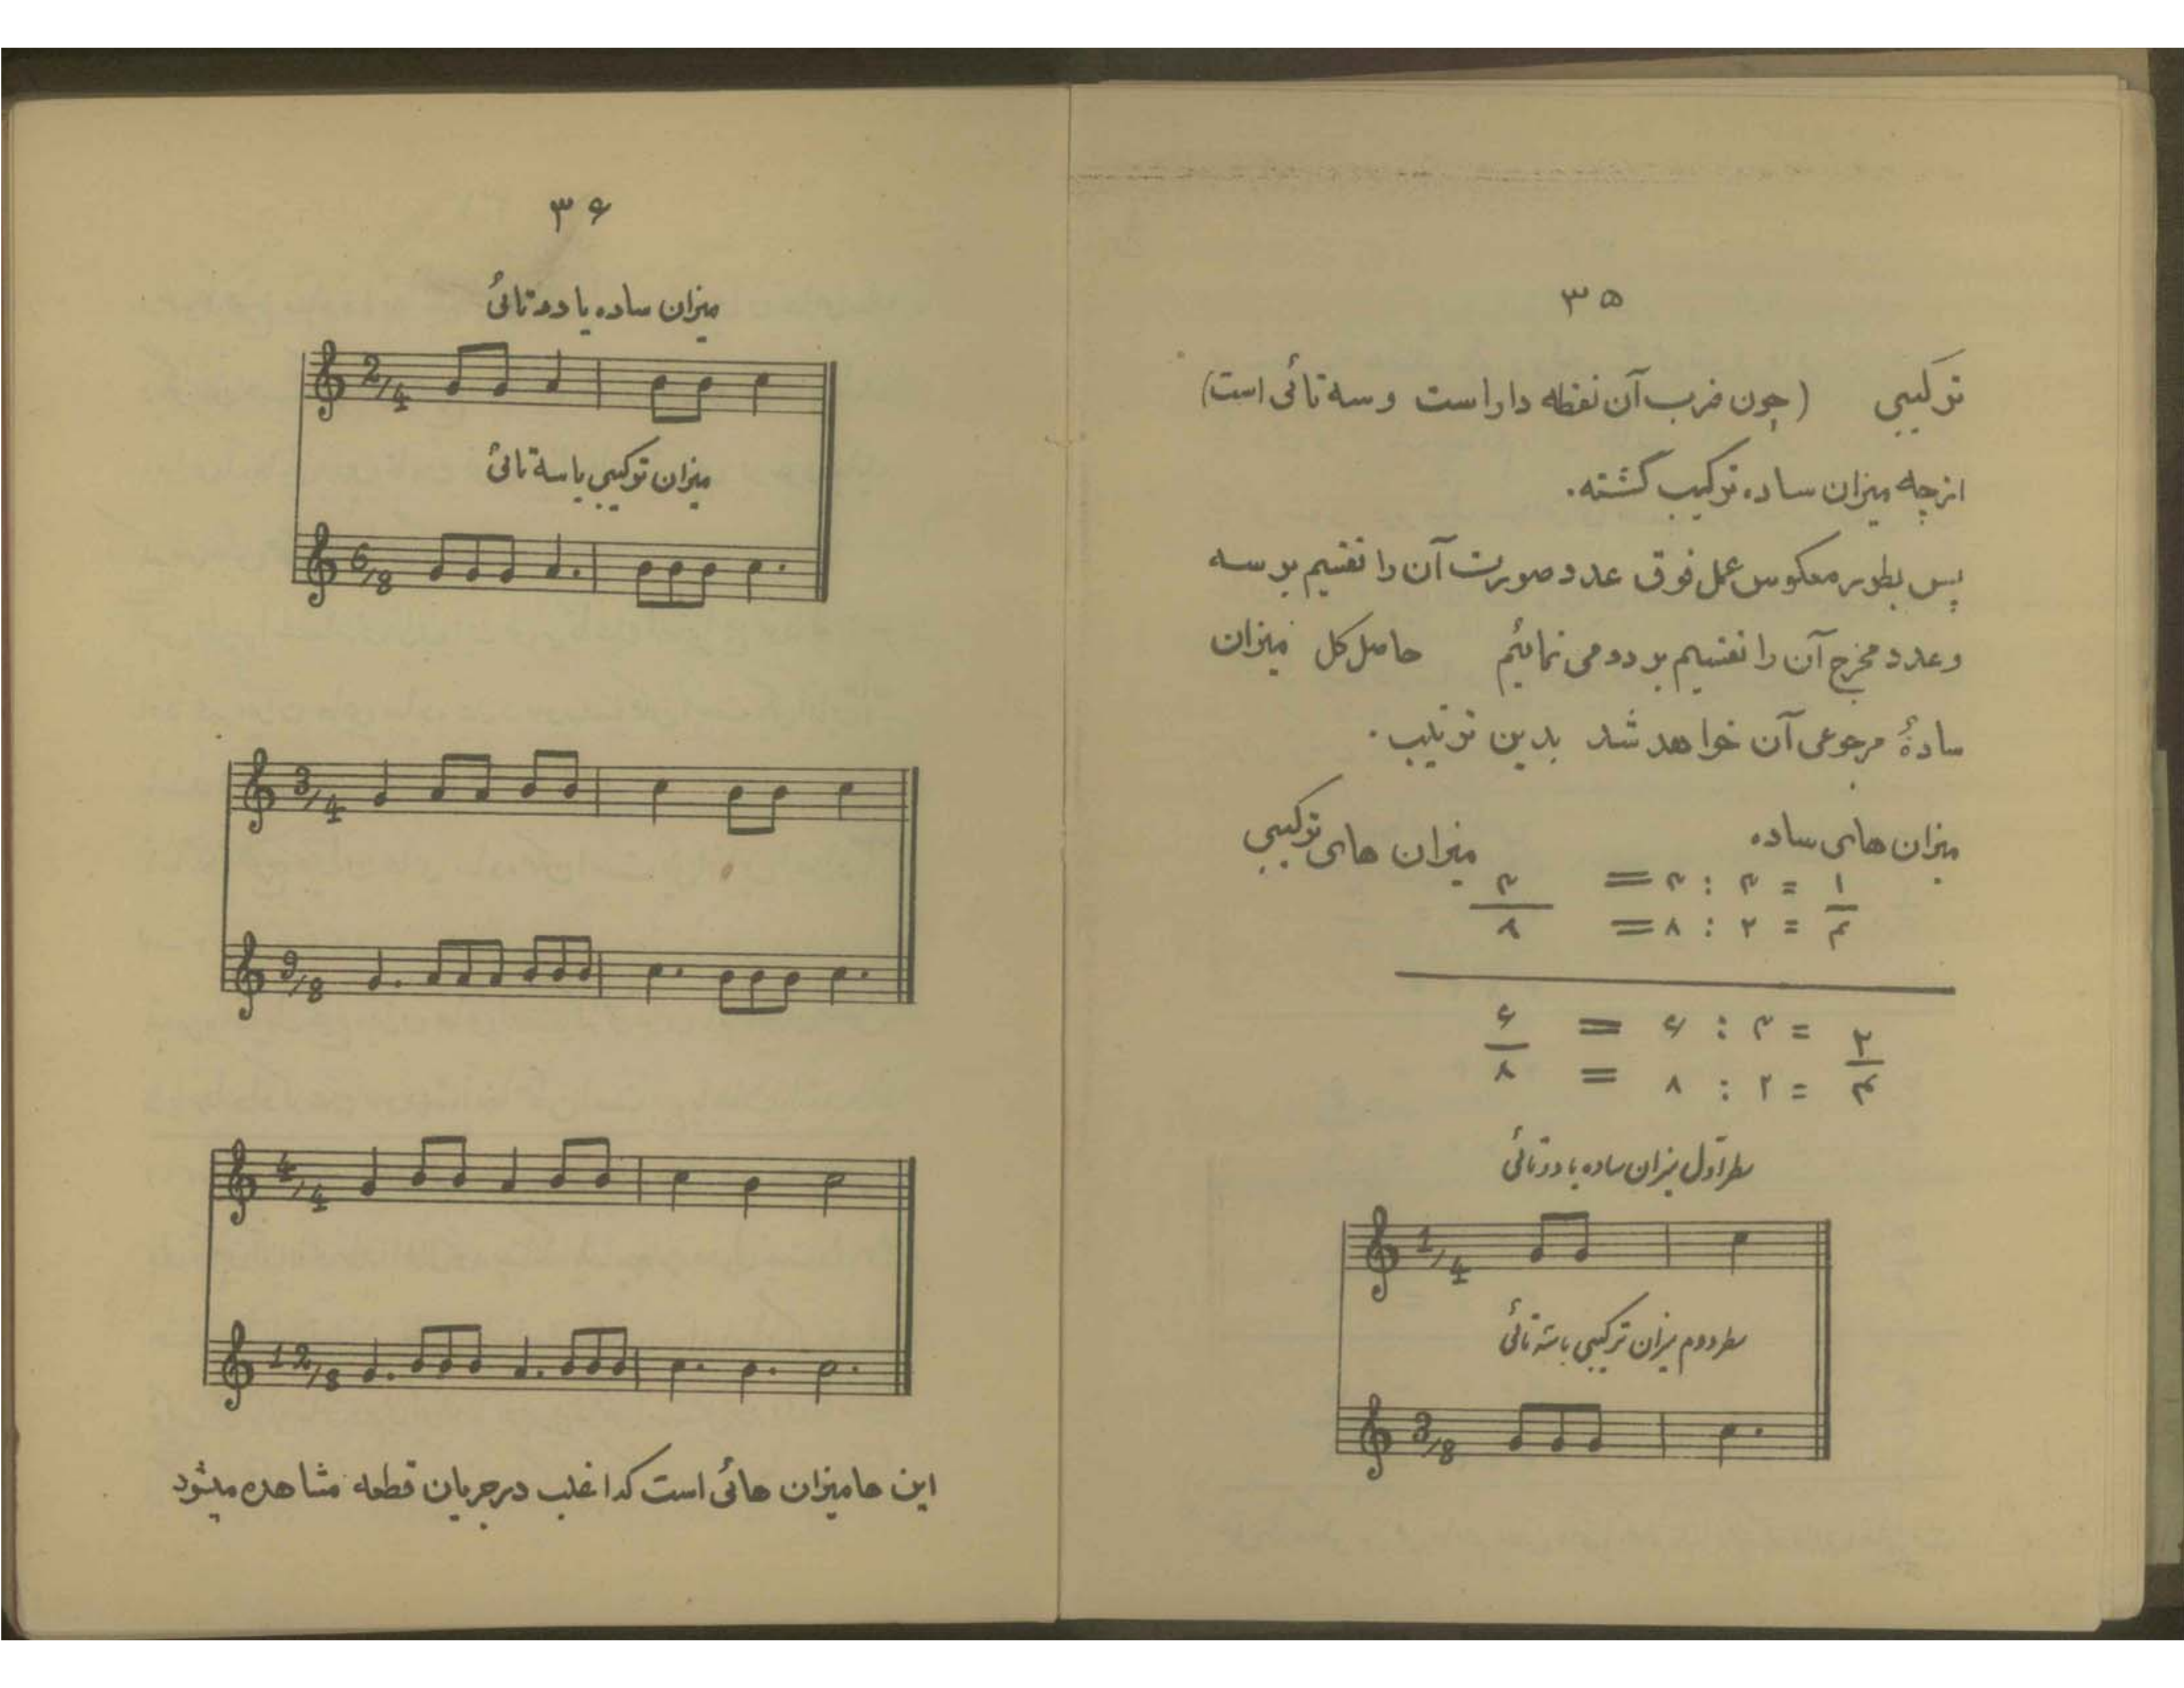 ۳۵
ترکیبی (چون ضرب آن نقطه دار است و سه تائی است)
از چه میزان ساده ترکیب گشته.
پس بطور معکوس عمل فوق عدد صورت آن را تقسیم بر سه
و عدد مخرج آن را تقسیم بر دو می نمائیم حاصل کل میزان
سادهٔ مرجوعی آن خواهد شد بدین ترتیب.
میزان های ساده میزان های ترکیبی
۱ = ۳ : ۳ = ۳
۴ = ۲ : ۸ = ۸
۲ = ۳ : ۶ = ۶
۴ = ۲ : ۸ = ۸
سطر اول میزان ساده یا دوتائی
1/4
سطر دوم میزان ترکیبی یا سه تائی
3/8
۳۶
میزان ساده یا دوتائی
2/4
میزان ترکیبی یا سه تائی
6/8
3/4
9/8
4/4
12/8
این ها میزان هائی است که اغلب در جریان قطعه مشاهده میشود